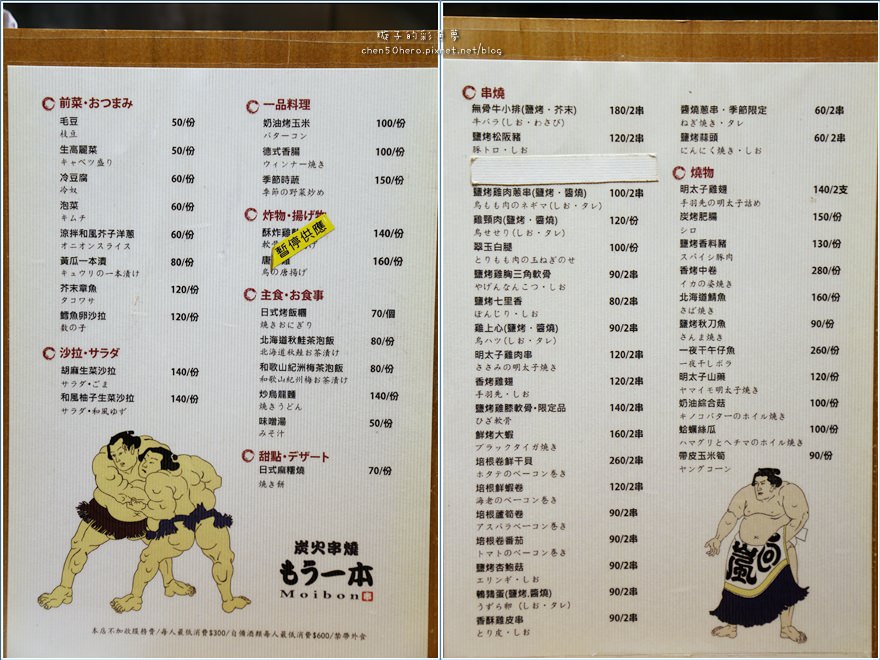 璇子的彩色夢
chen50hero.pixnet.net/blog
前菜・おつまみ
毛豆 50/份
枝豆
生高麗菜 50/份
キャベツ盛り
冷豆腐 60/份
冷奴
泡菜 60/份
キムチ
涼拌和風芥子洋蔥 60/份
オニオンスライス
黃瓜一本漬 80/份
キュウリの一本漬け
芥末章魚 120/份
タコワサ
鱈魚卵沙拉 120/份
数の子
沙拉・サラダ
胡麻生菜沙拉 140/份
サラダ・ごま
和風柚子生菜沙拉 140/份
サラダ・和風ゆず
一品料理
奶油烤玉米 100/份
バターコン
德式香腸 100/份
ウィンナー焼き
季節時蔬 150/份
季節の野菜炒め
炸物・揚げ物
酥炸雞 140/份
暫停供應
唐 160/份
鳥の唐揚げ
主食・お食事
日式烤飯糰 70/個
焼きおにぎり
北海道秋鮭茶泡飯 80/份
北海道秋鮭お茶漬け
和歌山紀洲梅茶泡飯 80/份
和歌山紀州梅お茶漬け
炒烏龍麵 140/份
焼きうどん
味噌湯 50/份
みそ汁
甜點・デザート
日式麻糬燒 70/份
焼き餅
炭火串燒
もう一本
Moibon
本店不加收服務費/每人最低消費$300/自備酒類每人最低消費$600/禁帶外食
串燒
無骨牛小排(鹽烤・芥末) 180/2串
牛バラ(しお・わさび)
鹽烤松阪豬 120/2串
豚トロ・しお
鹽烤雞肉蔥串(鹽烤・醬燒) 100/2串
鳥もも肉のネギマ(しお・タレ)
雞頸肉(鹽烤・醬燒) 120/份
鳥せせり(しお・タレ)
翠玉白腿 100/份
とりもも肉の玉ねぎのせ
鹽烤雞胸三角軟骨 90/2串
やげんなんこつ・しお
鹽烤七里香 80/2串
ぼんじり・しお
雞上心(鹽烤・醬燒) 90/2串
鳥ハツ(しお・タレ)
明太子雞肉串 120/2串
ささみの明太子焼き
香烤雞翅 120/2串
手羽先・しお
鹽烤雞膝軟骨・限定品 140/2串
ひざ軟骨
鮮烤大蝦 160/2串
ブラックタイガ焼き
培根卷鮮干貝 260/2串
ホタテのベーコン巻き
培根鮮蝦卷 120/2串
海老のベーコン巻き
培根蘆筍卷 90/2串
アスパラベーコン巻き
培根卷番茄 90/2串
トマトのベーコン巻き
鹽烤杏鮑菇 90/2串
エリンギ・しお
鵪鶉蛋(鹽烤,醬燒) 90/2串
うずら卵(しお・タレ)
香酥雞皮串 90/2串
とり皮・しお
醬燒蔥串・季節限定 60/2串
ねぎ焼き・タレ
鹽烤蒜頭 60/2串
にんにく焼き・しお
燒物
明太子雞翅 140/2支
手羽先の明太子詰め
炭烤肥腸 150/份
シロ
鹽烤香料豬 130/份
スパイシ豚肉
香烤中卷 280/份
イカの姿焼き
北海道鯖魚 160/份
さば焼き
鹽烤秋刀魚 90/份
さんま焼き
一夜干午仔魚 260/份
一夜干しボラ
明太子山藥 120/份
ヤマイモ明太子焼き
奶油綜合菇 100/份
キノコバターのホイル焼き
蛤蠣絲瓜 100/份
ハマグリとヘチマのホイル焼き
帶皮玉米筍 90/份
ヤングコーン
嵐